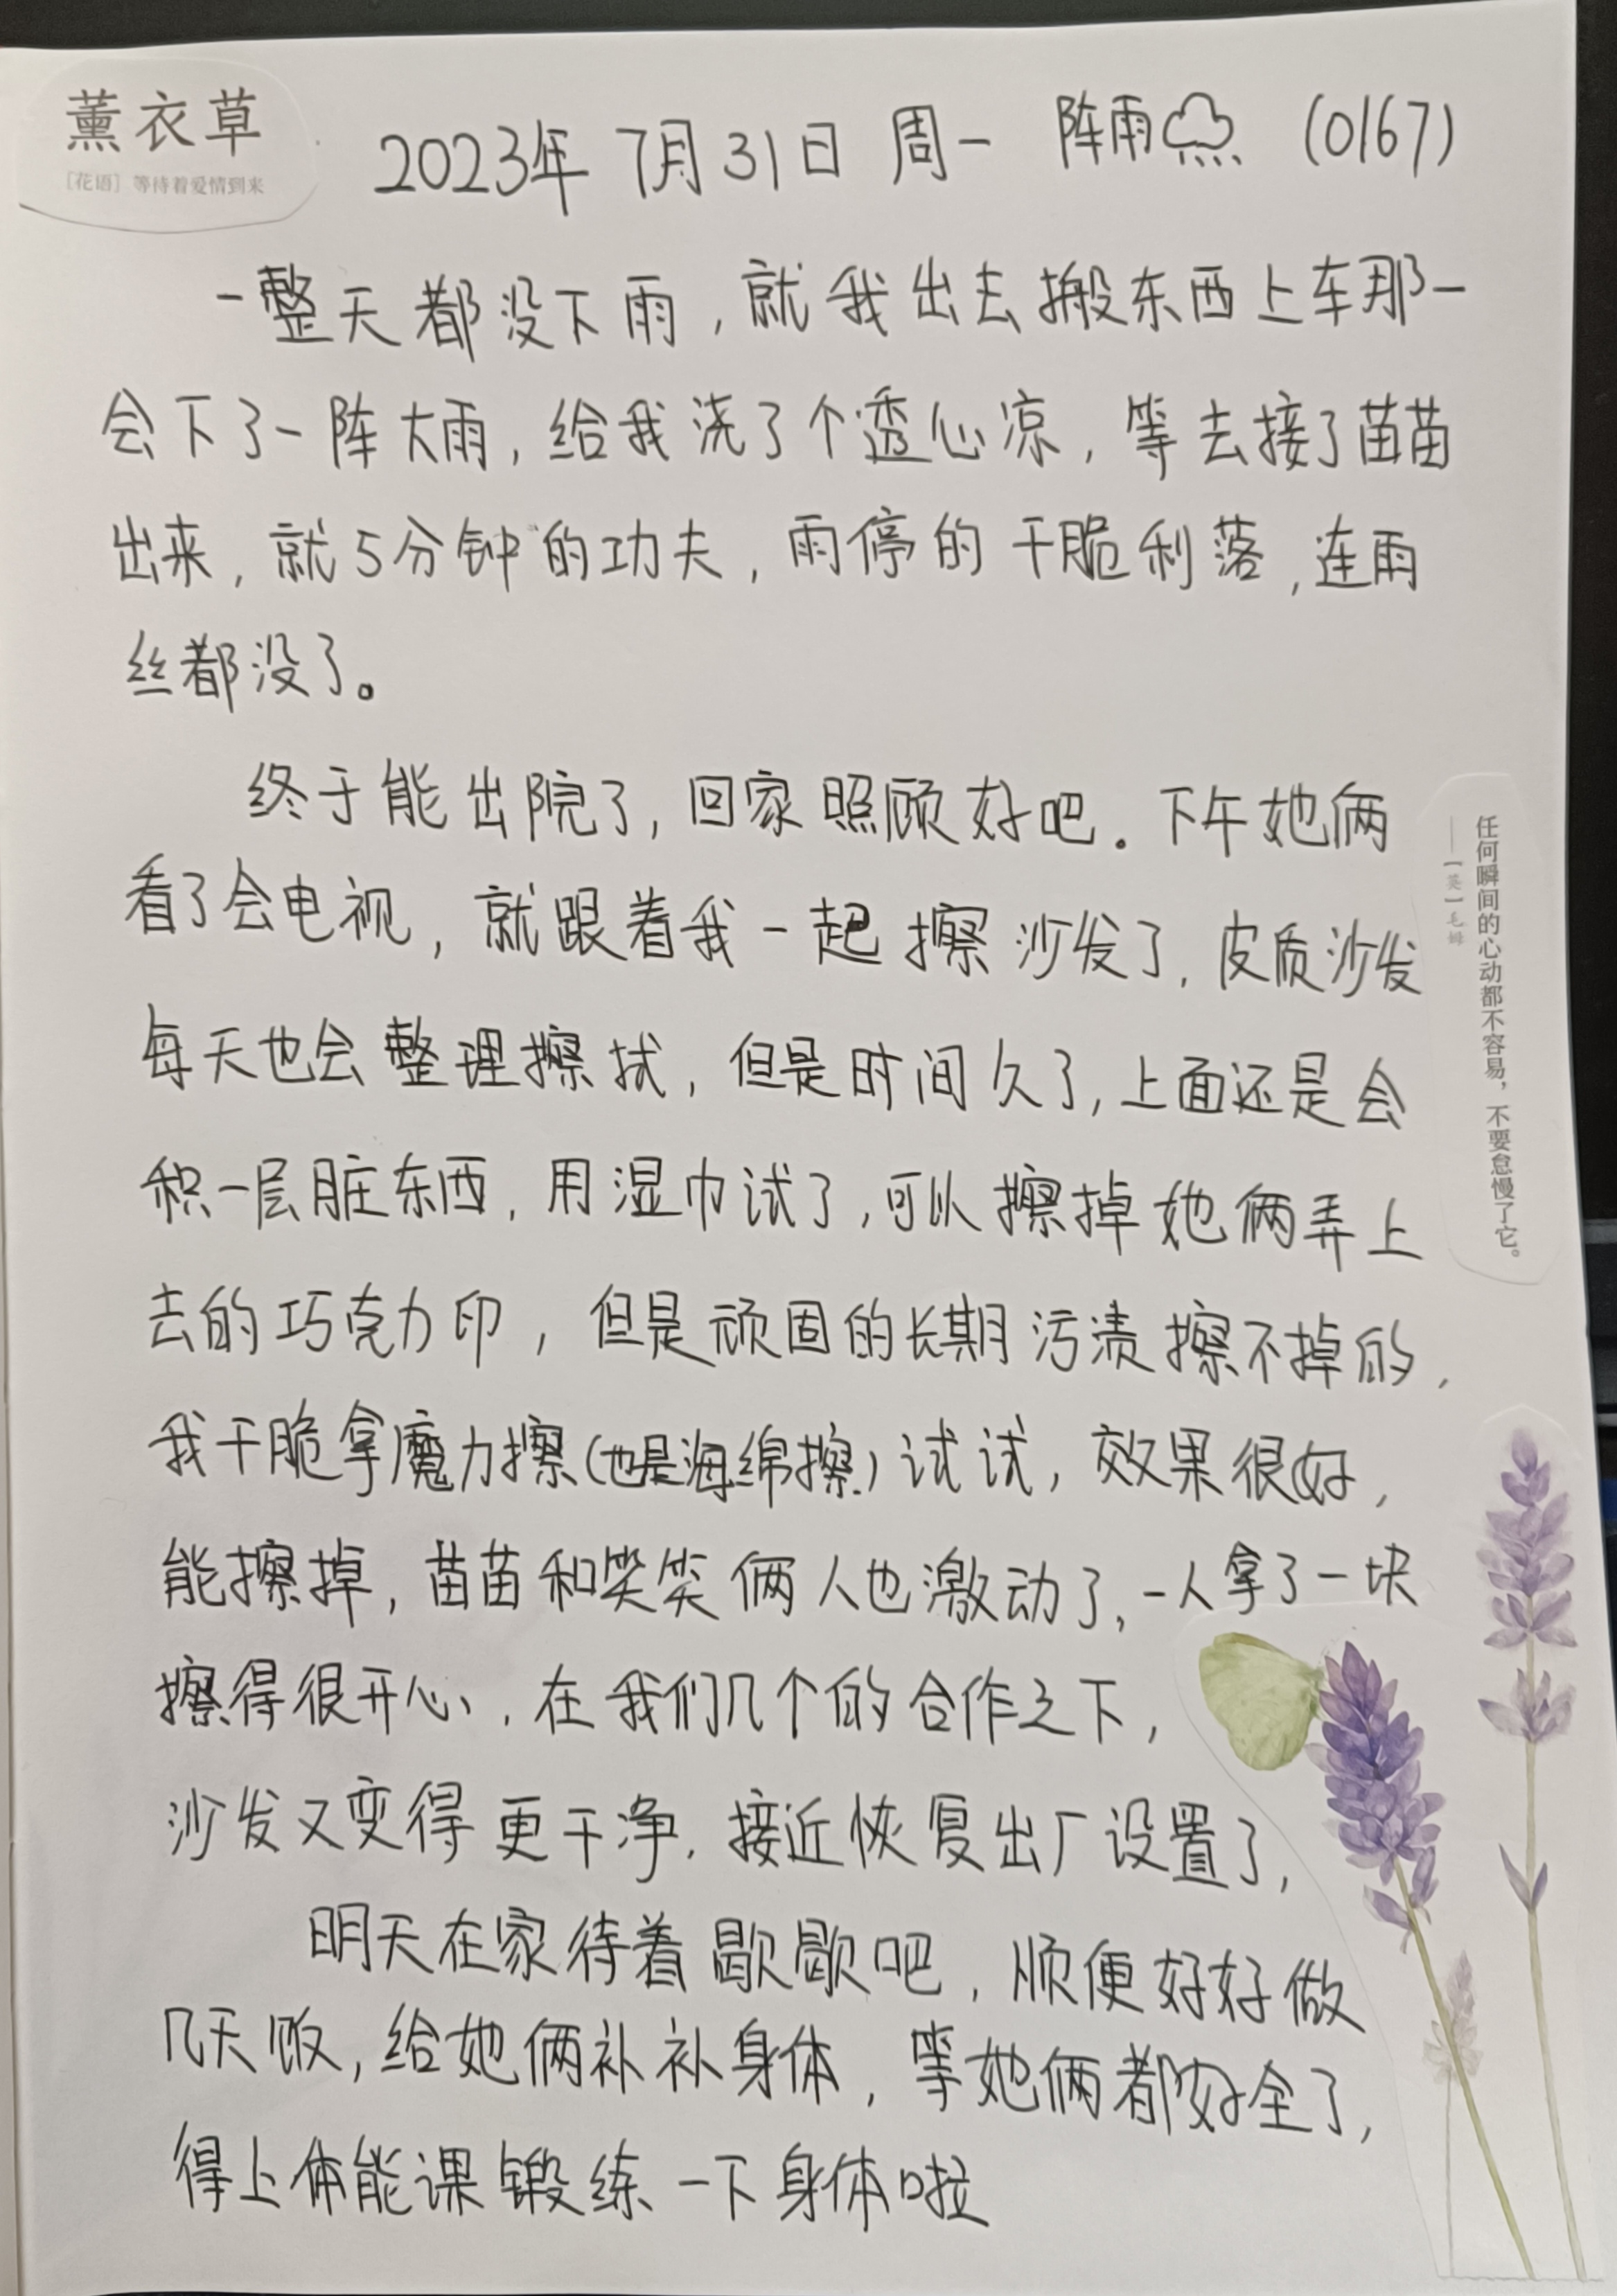 薰衣草
[花语] 等待着爱情到来
2023年 7月31日 周一 阵雨 (0167)
一整天都没下雨，就我出去搬东西上车那一
会下了一阵大雨，给我浇了个透心凉，等去接了苗苗
出来，就5分钟的功夫，雨停的干脆利落，连雨
丝都没了。
终于能出院了，回家照顾好吧。下午她俩
看了会电视，就跟着我一起擦沙发了，皮质沙发
每天也会整理擦拭，但是时间久了，上面还是会
积一层脏东西，用湿巾试了，可以擦掉她俩弄上
去的巧克力印，但是顽固的长期污渍擦不掉的，
我干脆拿魔力擦(也是海绵擦)试试，效果很好，
能擦掉，苗苗和笑笑俩人也激动了，一人拿了一块
擦得很开心，在我们几个的合作之下，
沙发又变得更干净，接近恢复出厂设置了，
明天在家待着歇歇吧，顺便好好做
几天饭，给她俩补补身体，等她俩都好全了，
得上体能课锻练一下身体啦
任何瞬间的心动都不容易，不要怠慢了它。
——[英]毛姆